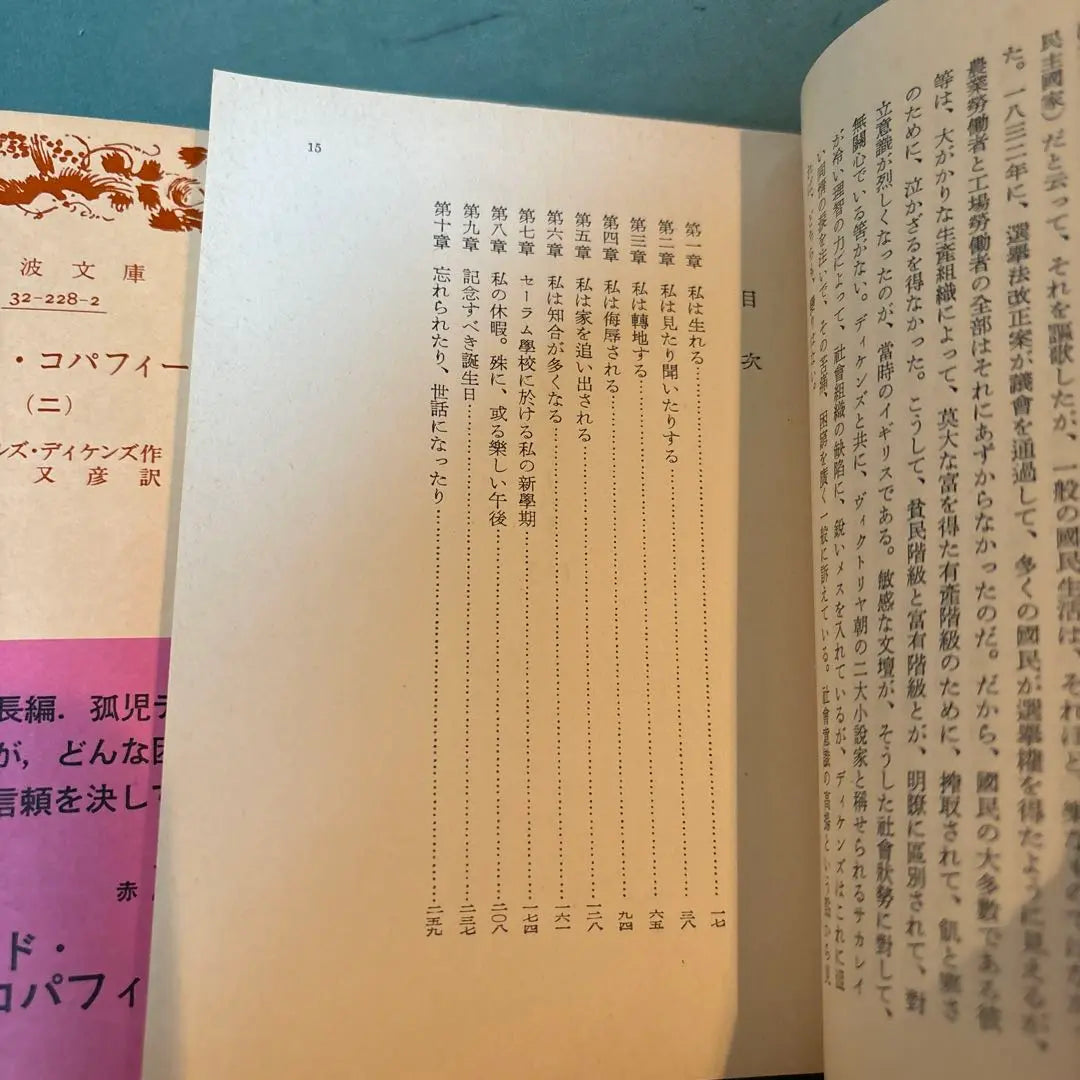 民主國家）だと云って、それを謳歌したが、一般の國民生活は、それほど、樂なものではなかっ
た。一八三二年に、選擧法改正案が議會を通過して、多くの國民が選擧權を得たように見えるが、
農業勞働者と工場勞働者の全部はそれにあずからなかったのだ。だから、國民の大多數である彼
等は、大がかりな生產組織によって、莫大な富を得た有產階級のために、搾取されて、飢と寒さ
のために、泣かざるを得なかった。こうして、貧民階級と富有階級とが、明瞭に區別されて、對
立意識が烈しくなったのが、當時のイギリスである。敏感な文壇が、そうした社會狀勢に對して、
無關心でいる筈がない。ディケンズと共に、ヴィクトリヤ朝の二大小說家と稱せられるサカレイ
が冷い理智の力によって、社會組織の缺陷に、銳いメスを入れているが、ディケンズはこれに
15
目 次
第一章 私は生れる…………一七
第二章 私は見たり聞いたりする…………三八
第三章 私は轉地する…………六五
第四章 私は侮辱される…………九四
第五章 私は家を追い出される…………一二八
第六章 私は知合が多くなる…………一六一
第七章 セーラム學校に於ける私の新學期…………一七四
第八章 私の休暇。殊に、或る樂しい午後…………二〇八
第九章 記念すべき誕生日…………二三七
第十章 忘れられたり、世話になったり…………二五九
波文庫
32-228-2
・コパフィー
（二）
ルズ・ディケンズ作
又彦訳
長編．孤児デ
が，どんな困
信頼を決して
赤
ド・
コパフィ